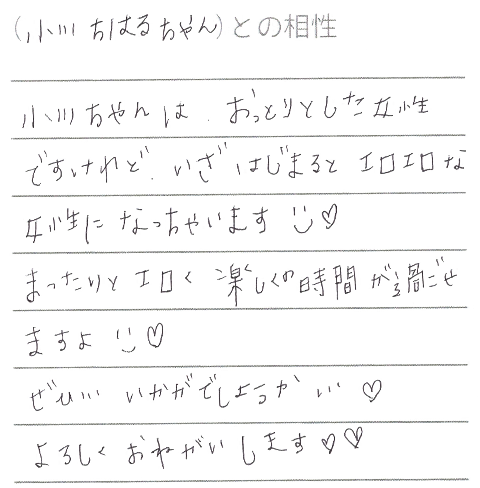 (小川 ちはるちゃん)との相性
小川ちゃんは、おっとりとした女性
ですけれど、いざはじまるとエロエロな
女性になっちゃいます♡
まったりとエロく 楽しくの時間が過ごせ
ますよ♡
ぜひ!!! いかがでしょうか!!! ♡
よろしく おねがいします♡♡